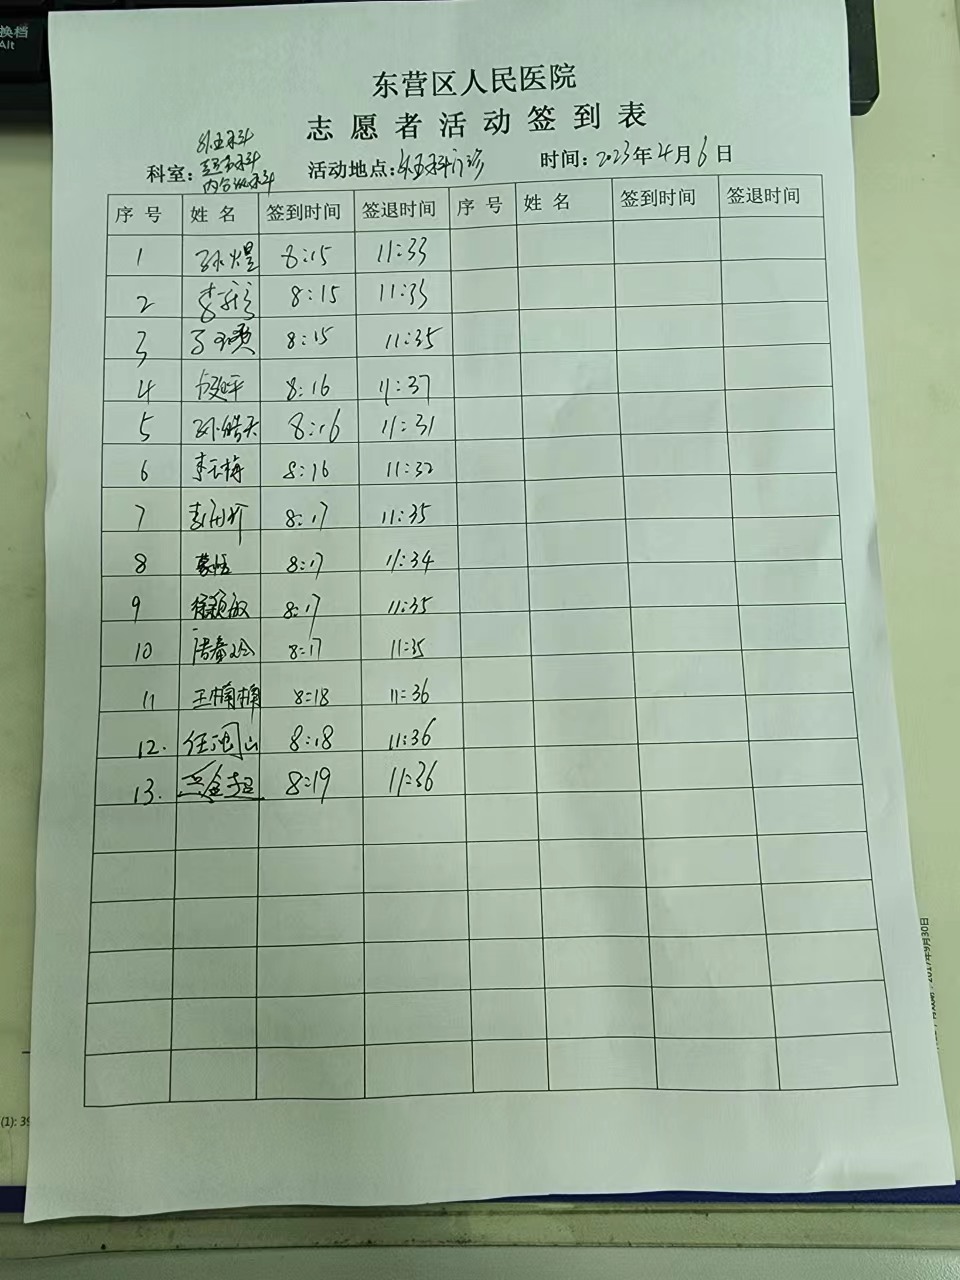 换档
Alt
东营区人民医院
志愿者活动签到表
科室：
外五科
活动地点：外五科门诊 时间：2023年4月6日
序号 姓名 签到时间 签退时间 序号 姓名 签到时间 签退时间
1 孙煜 8:15 11:33
2 8:15 11:35
3 8:15 11:35
4 8:16 11:37
5 孙皓天 8:16 11:31
6 李云梅 8:16 11:32
7 8:17 11:35
8 8:17 11:34
9 徐颖敏 8:17 11:35
10 8:17 11:35
11 王楠楠 8:18 11:36
12. 任闽山 8:18 11:36
13. 8:19 11:36
2017年9月30日
(1): 39